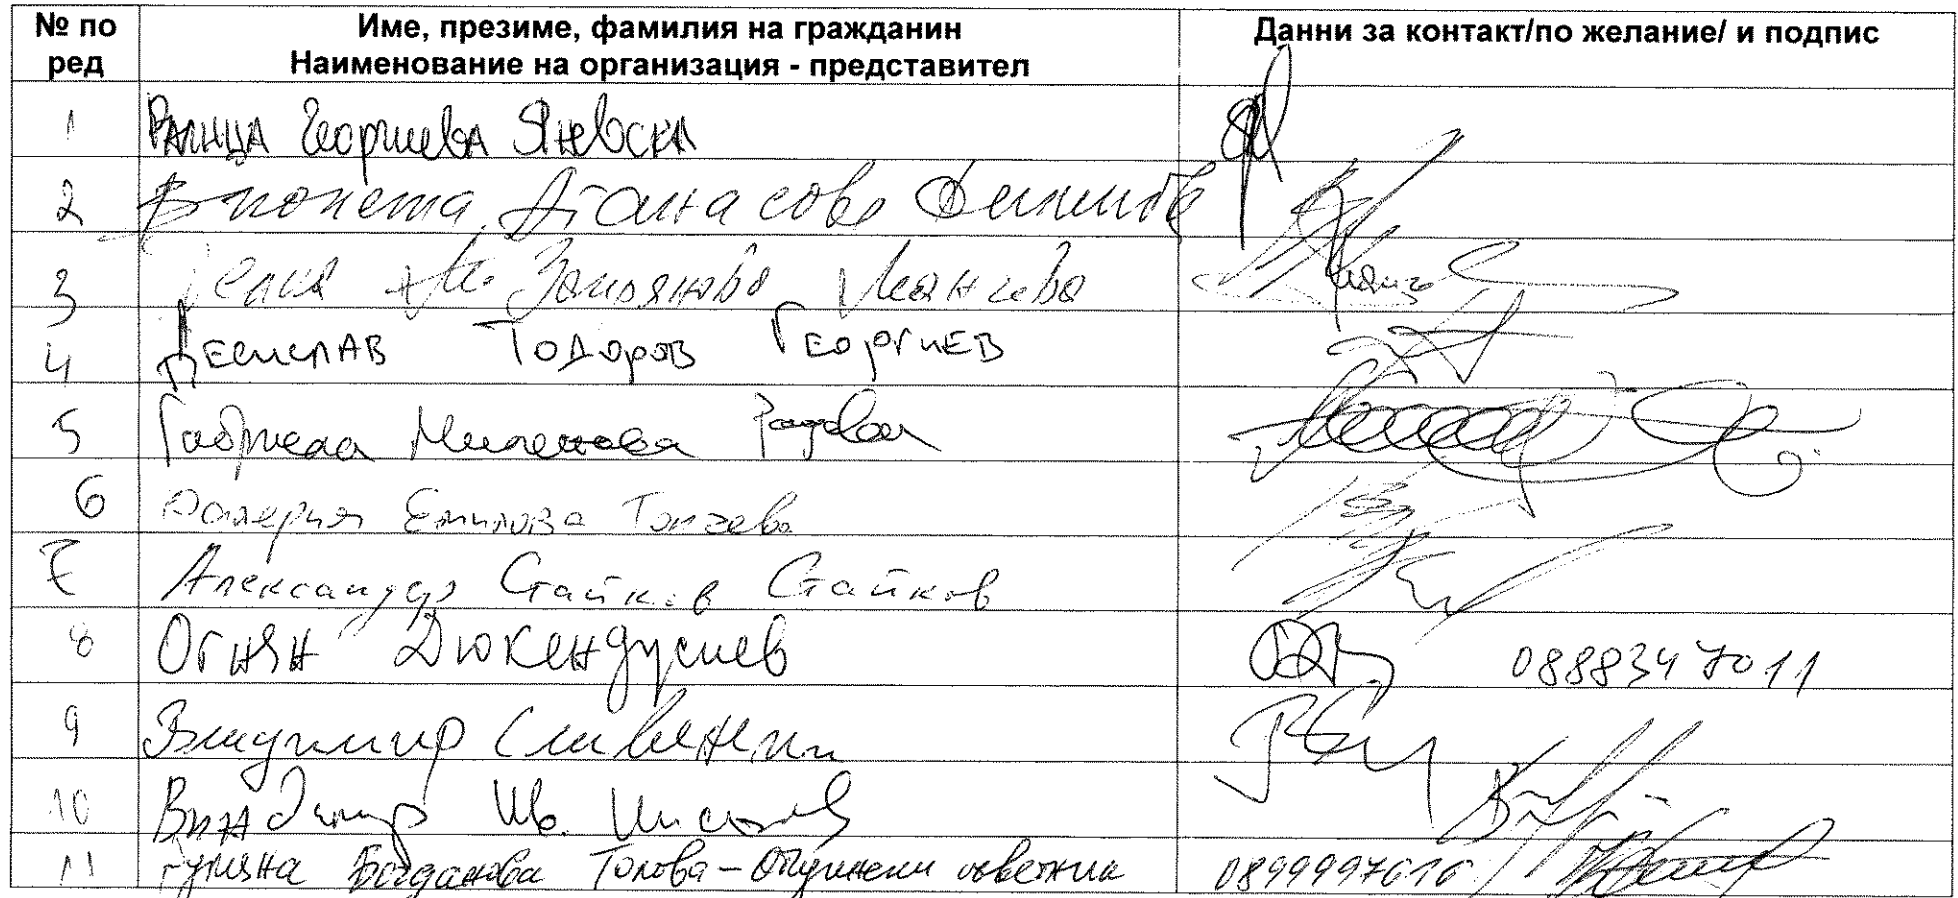 № по ред
Име, презиме, фамилия на гражданин
Наименование на организация - представител
Данни за контакт/по желание/ и подпис
1 Ралица Георгиева Яневска
2 Виолета Атанасова
3 Манчева
4 Десислав Тодоров Георгиев
5 Габриела Миленова
6 Валерия Емилова Топчева
7 Александър Стайков Стайков
8 Огнян Дюкендусиев 0888347011
9 Владимир
10 Владимир Ив.
11 Богданова Толова - общински съветник 0899997616